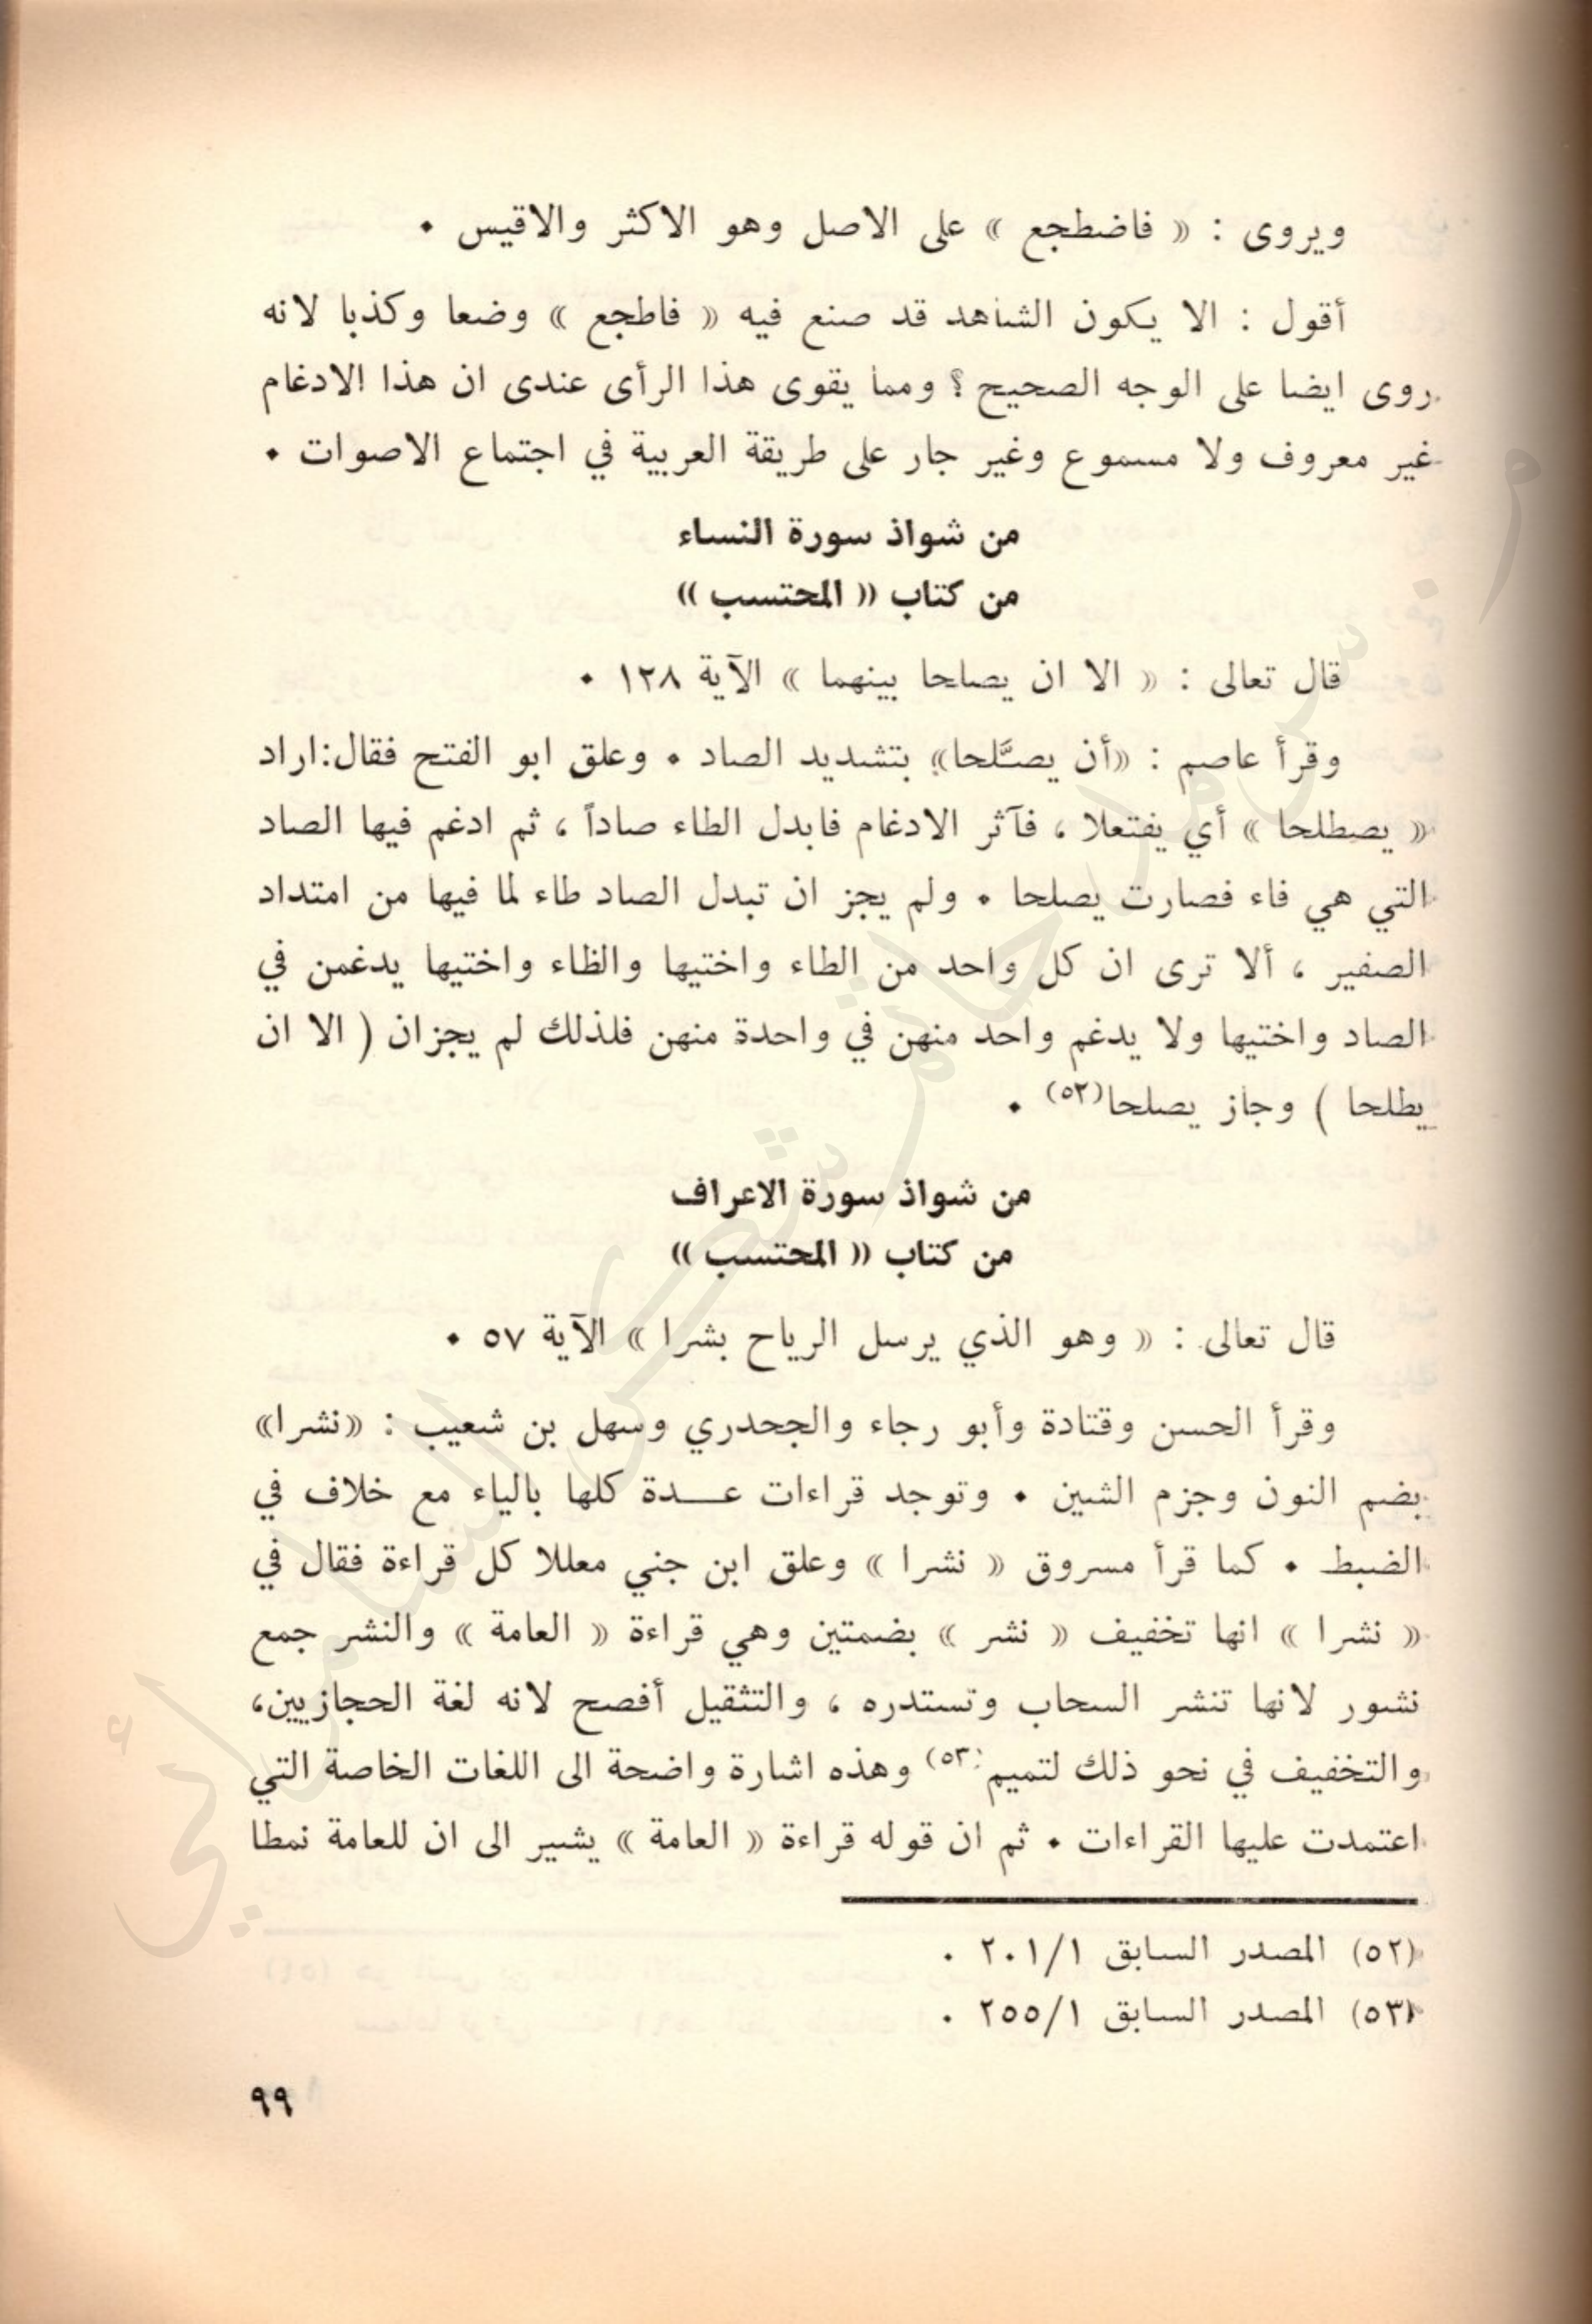 ويروى : « فاضطجع » على الاصل وهو الاكثر والاقيس .
أقول : الا يكون الشاهد قد صنع فيه « فاطجع » وضعا وكذبا لانه
روى ايضا على الوجه الصحيح ؟ ومما يقوى هذا الرأى عندى ان هذا الادغام
غير معروف ولا مسموع وغير جار على طريقة العربية في اجتماع الاصوات .
من شواذ سورة النساء
من كتاب « المحتسب »
قال تعالى : « الا ان يصلحا بينهما » الآية ١٢٨ .
وقرأ عاصم : «أن يصَّلحا» بتشديد الصاد . وعلق ابو الفتح فقال:اراد
« يصطلحا » أي يفتعلا ، فآثر الادغام فابدل الطاء صاداً ، ثم ادغم فيها الصاد
التي هي فاء فصارت يصلحا . ولم يجز ان تبدل الصاد طاء لما فيها من امتداد
الصفير ، ألا ترى ان كل واحد من الطاء واختيها والظاء واختيها يدغمن في
الصاد واختيها ولا يدغم واحد منهن في واحدة منهن فلذلك لم يجزان ( الا ان
يطلحا ) وجاز يصلحا(٥٢) .
من شواذ سورة الاعراف
من كتاب « المحتسب »
قال تعالى : « وهو الذي يرسل الرياح بشرا » الآية ٥٧ .
وقرأ الحسن وقتادة وأبو رجاء والجحدري وسهل بن شعيب : «نشرا»
بضم النون وجزم الشين . وتوجد قراءات عـــدة كلها بالياء مع خلاف في
الضبط . كما قرأ مسروق « نشرا » وعلق ابن جني معللا كل قراءة فقال في
« نشرا » انها تخفيف « نشر » بضمتين وهي قراءة « العامة » والنشر جمع
نشور لانها تنشر السحاب وتستدره ، والتثقيل أفصح لانه لغة الحجازيين،
والتخفيف في نحو ذلك لتميم(٥٣) وهذه اشارة واضحة الى اللغات الخاصة التي
اعتمدت عليها القراءات . ثم ان قوله قراءة « العامة » يشير الى ان للعامة نمطا
(٥٢) المصدر السابق ٢٠١/١ .
(٥٣) المصدر السابق ٢٥٥/١ .
٩٩